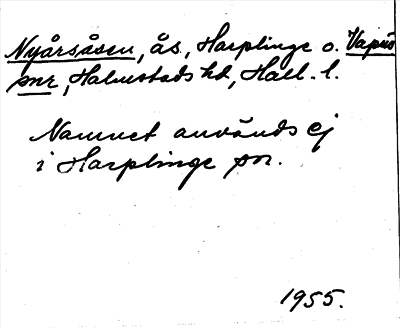 Nyårsåsen, ås, Harplinge o. Vapnö
snr, Halmstads hd, Hall. l.
Namnet används ej
i Harplinge sn.
1955.